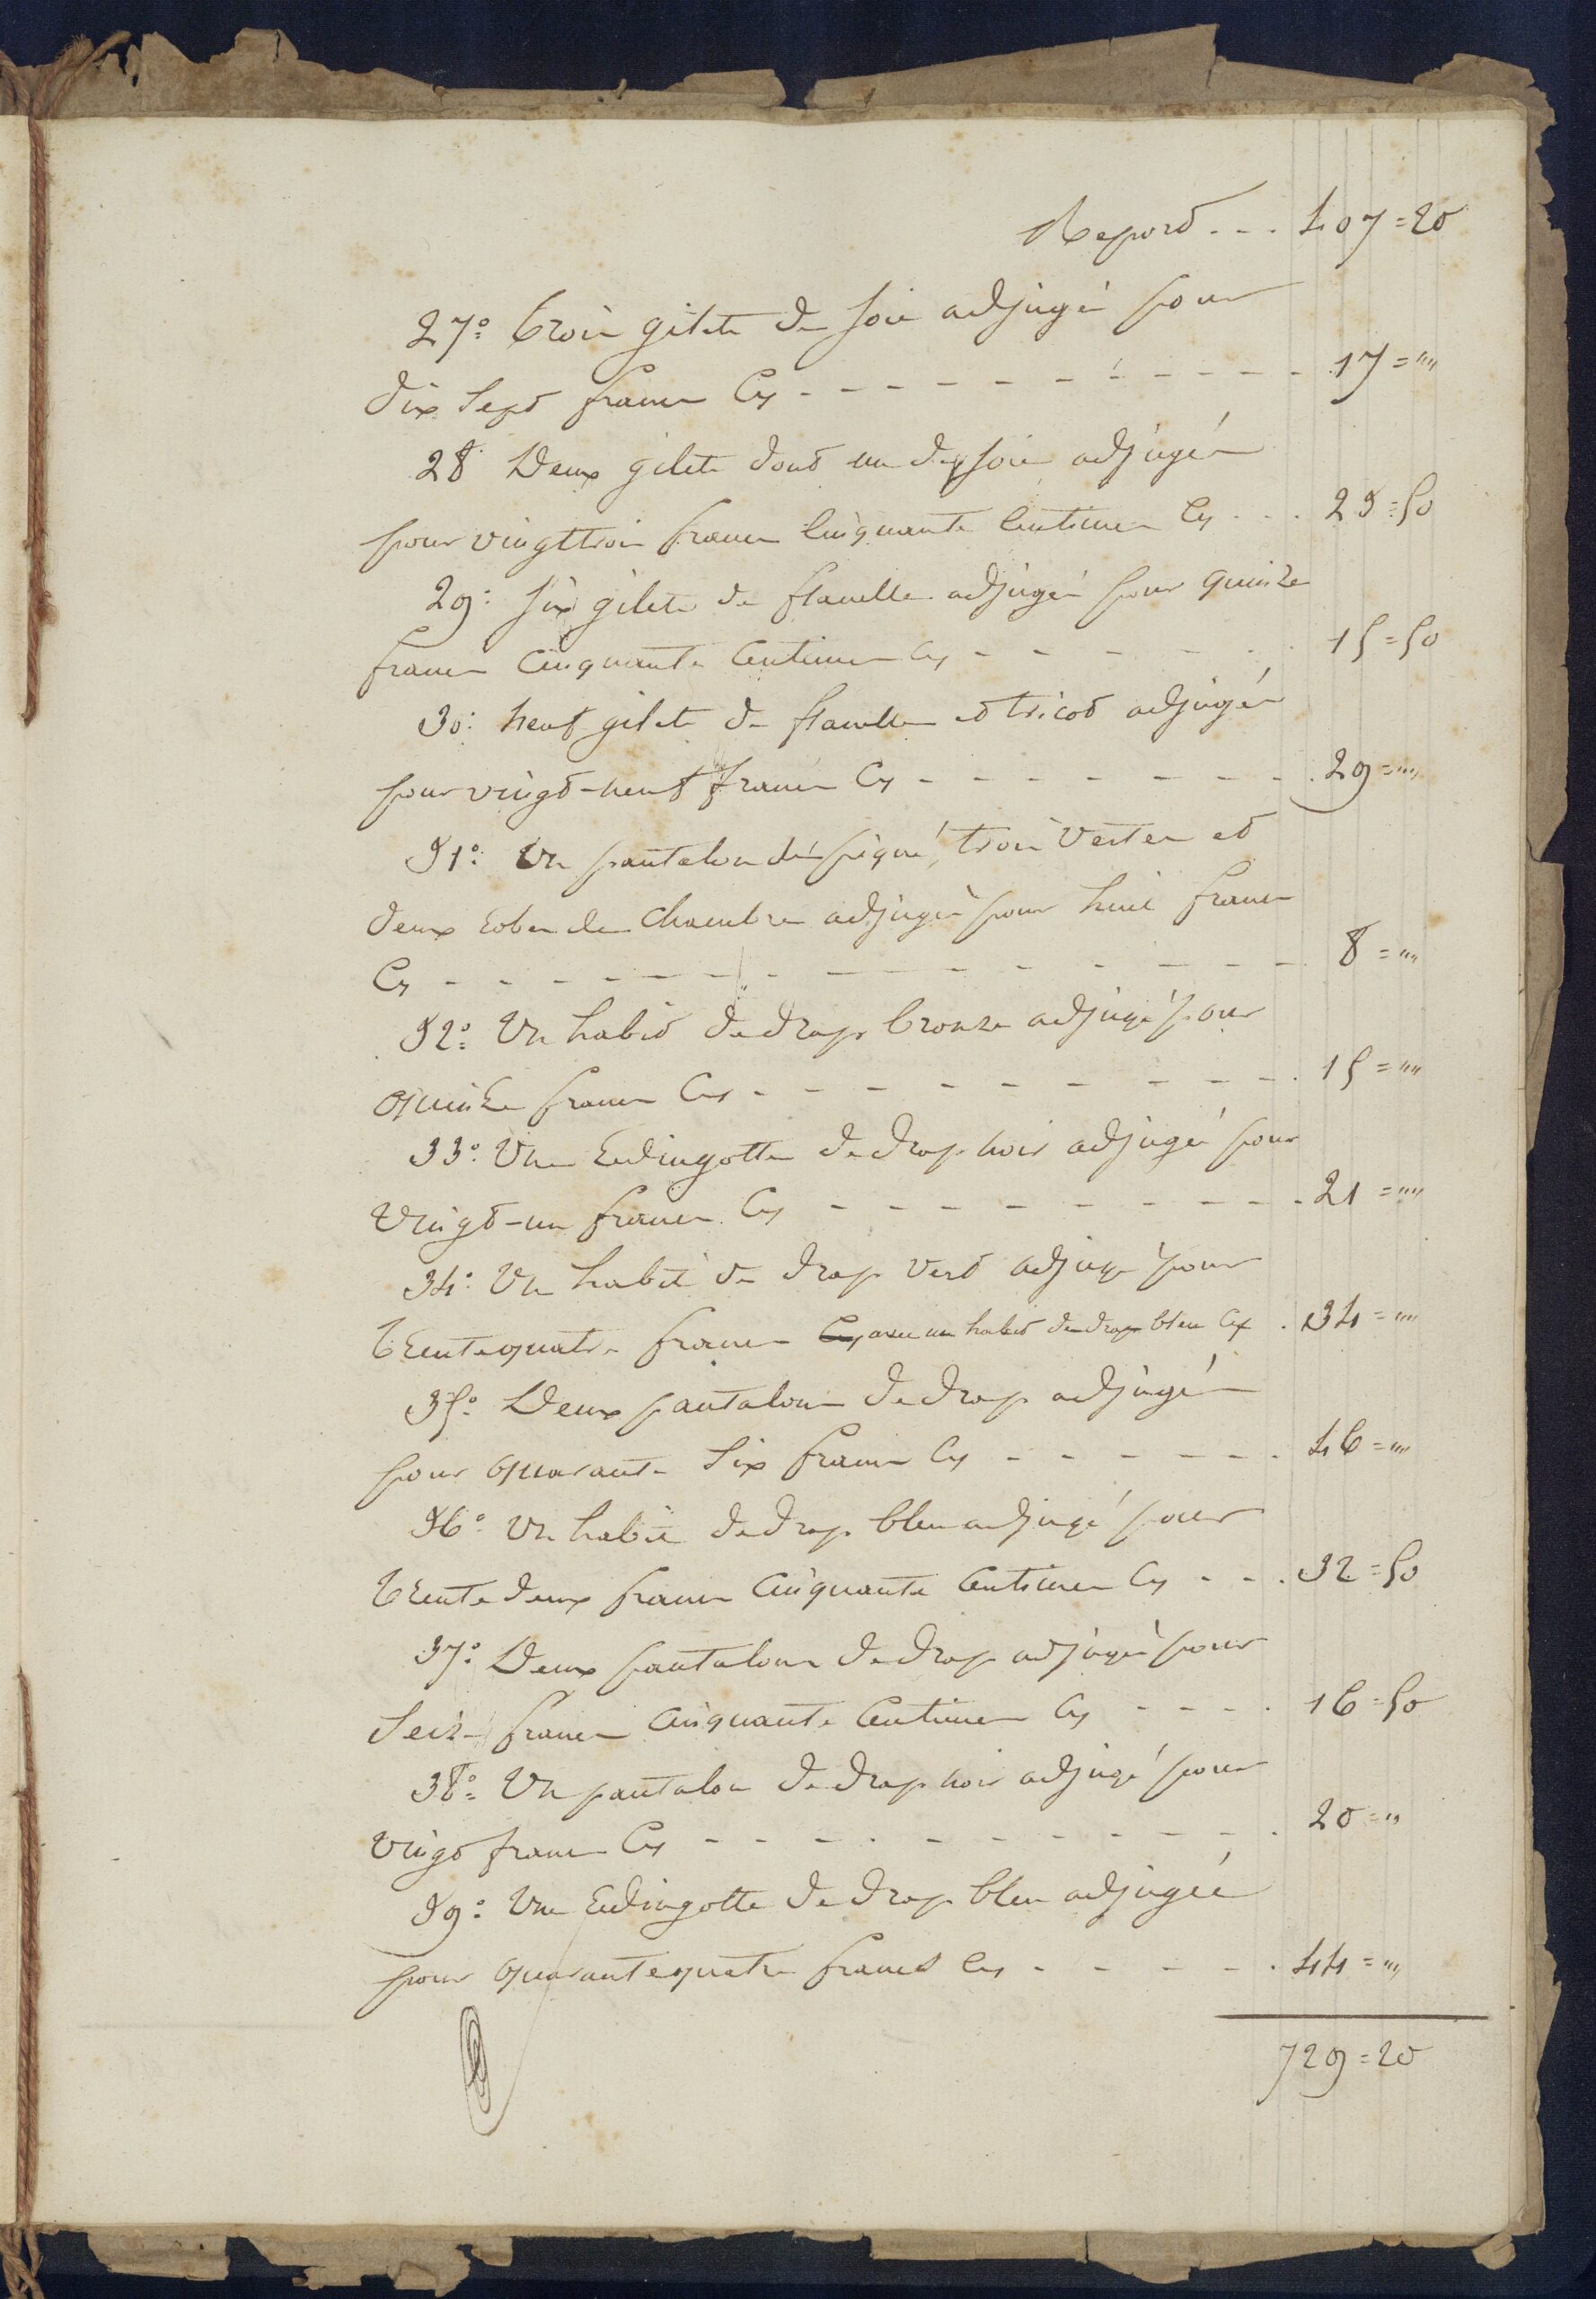 Report - - - 407 = 20
27° trois gilets de soie adjugés pour
dix sept francs Cy - - - - - - - - - - 17 = ""
28 Deux gilets dont un de soie adjugés
pour vingttrois francs cinquante centimes Cy - - - 23 = 50
29° six gilets de flanelle adjugés pour quinze
francs cinquante centimes Cy - - - - - - 15 = 50
30° neuf gilets de flanelle et tricot adjugés
pour vingt-neuf francs Cy - - - - - - - - 29 = ""
31° Un pantalon de piqué, trois vestes et
deux robes de chambre adjugés pour huit francs
Cy - - - - - - - - - - - - - 8 = ""
32° Un habit de drap bronze adjugé pour
quinze francs Cy - - - - - - - - - - 15 = ""
33° Une redingotte de drap noir adjugé pour
vingt-un francs Cy - - - - - - - - - - 21 = ""
34° Un habit de drap vert adjugé pour
trentequatre francs Cy avec un habit de drap bleu Cy . 34 = ""
35° Deux pantalons de drap adjugés
pour quarante six francs Cy - - - - - - 46 = ""
36° Un habit de drap bleu adjugé pour
trente deux francs cinquante centimes Cy - - - 32 = 50
37° Deux pantalons de drap adjugés pour
seize francs cinquante centimes Cy - - - - 16 = 50
38° Un pantalon de drap noir adjugé pour
vingt francs Cy - - - - - - - - - - 20 = "
39° Une redingotte de drap bleu adjugée
pour quarantequatre francs Cy - - - - - 44 = ""
729 = 20